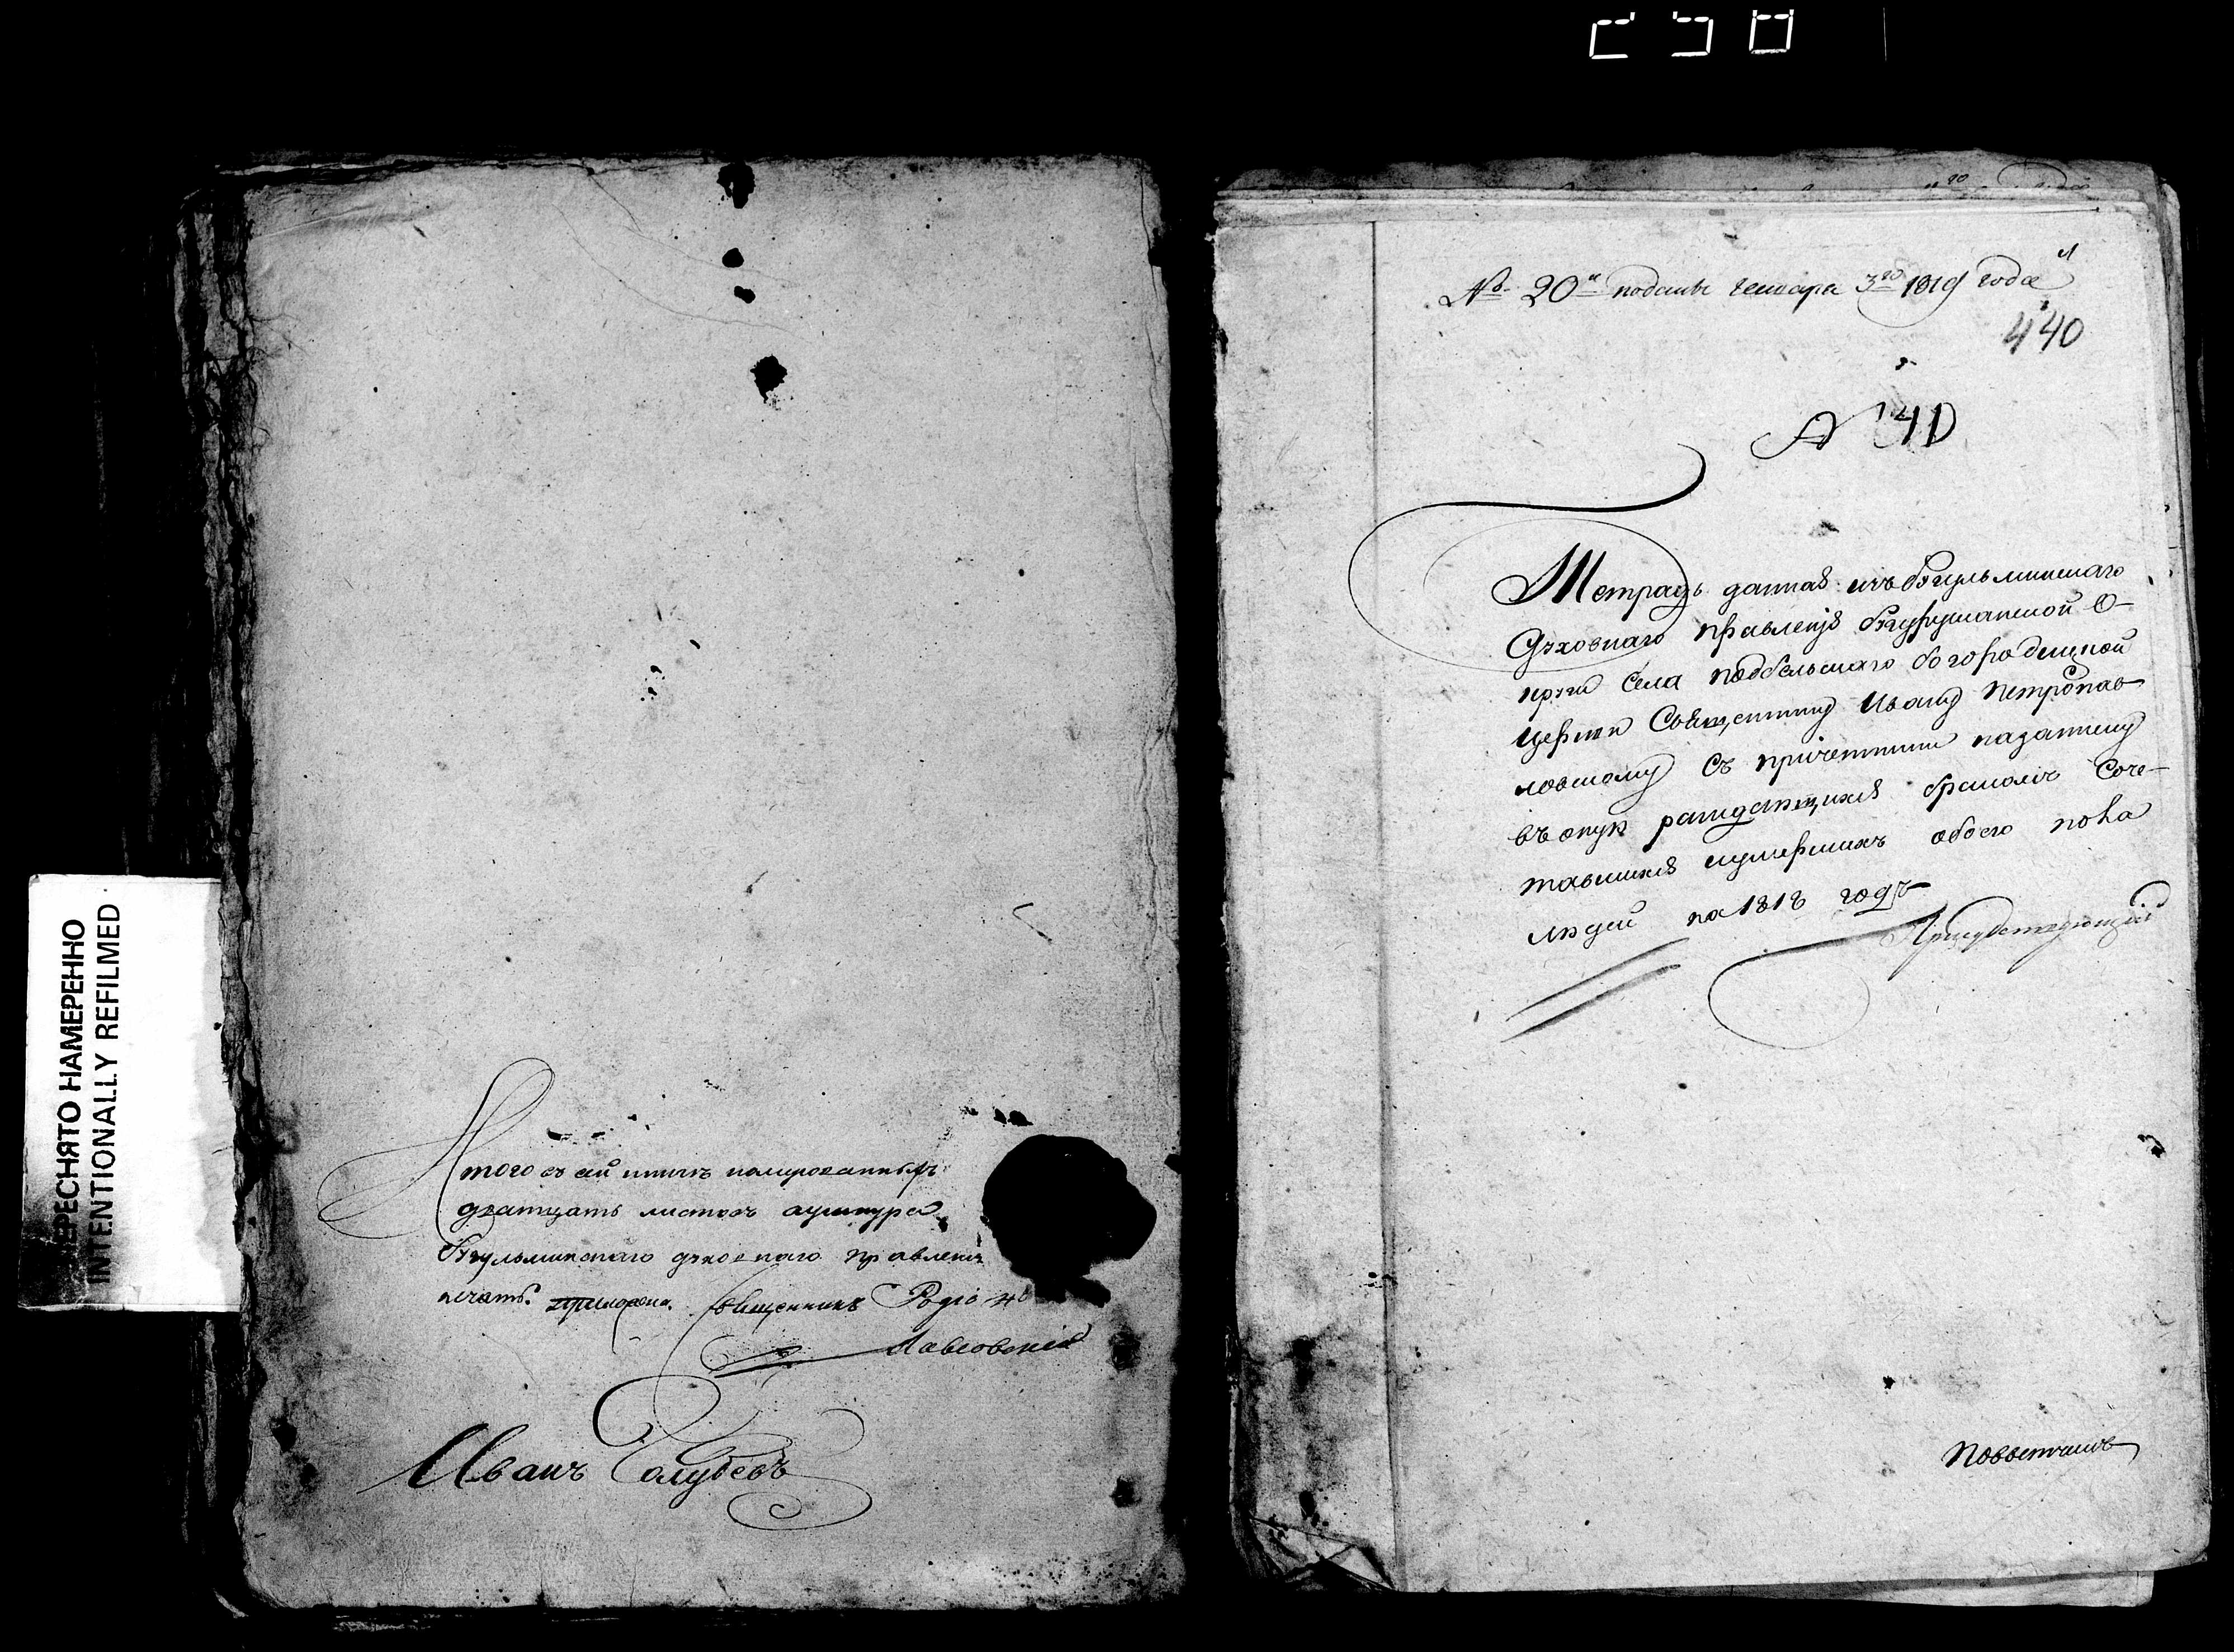 ПЕРЕСНЯТО НАМЕРЕННО
INTENTIONALLY REFILMED
Итого въ сей книгѣ нумерованныхъ
дватцать листовъ ушнура
Бугульминскаго духовнаго правленія
печать приложена. Священникъ Родіонъ
Павловскій
Иванъ Голубевъ
№ 20й поданы генваря 3го 1819 года
440
№ 41
Тетрадь данная изъ Бугульминскаго
Духовнаго правленія бугурусланской о-
круги села подбельскаго богородицкой
церкви Священнику Ивану Петропав
ловскому съ причетники
въ оную раждающихся бракомъ Соче-
тавшихся иумершихъ обоего пола
людей на 1818 годъ